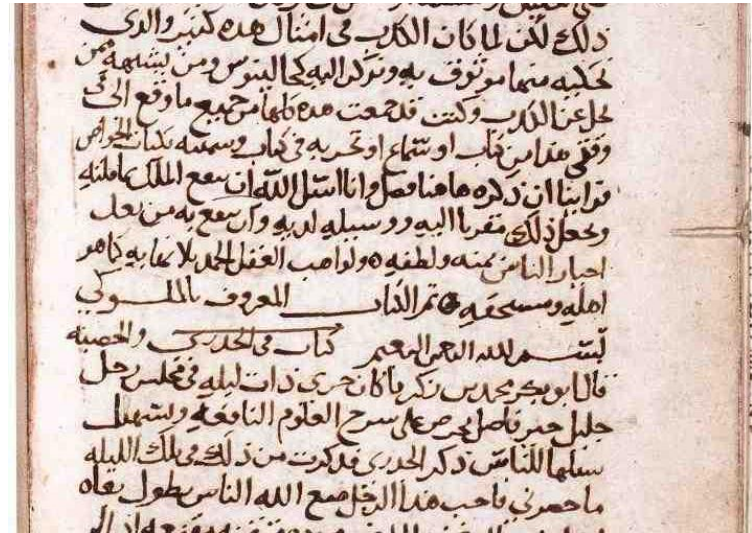 ذلك لكن لما كان الكذب في امثال هذه كثير والذي
نحكيه منها موثوق به ونركن اليه كجالينوس ومن يشبهه ممن
يجل عن الكذب وكنت قد جمعت هذه كلها من جميع ما وقع الي في
وقتي هذا من كتاب او سماع او تجربه في كتاب وسمته بكتاب الخواص
فراينا ان ذكره هاهنا فصل وانا اسل الله ان ينفع الملك بما قلته
ويجعل ذلك مقربا اليه ووسيله لديه وان ينفع به من
اخيار الناس بمنه ولطفه ولواهب العقل الحمد بلا نهايه كما هو
اهله ومستحقه تم الكتاب المعروف بالملوكي
بسم الله الرحمن الرحيم كتاب في الجدري والحصبه
قال ابو بكر محمد بن زكريا كان جرى ذات ليله في مجلس رجل
جليل خير فاضل يحرص على شرح العلوم النافعه وتسهيل
سبلها للناس ذكر الجدري فذكرت من ذلك في تلك الليله
ما حضرني فاحب هذا الرجل متع الله الناس بطول بقاه